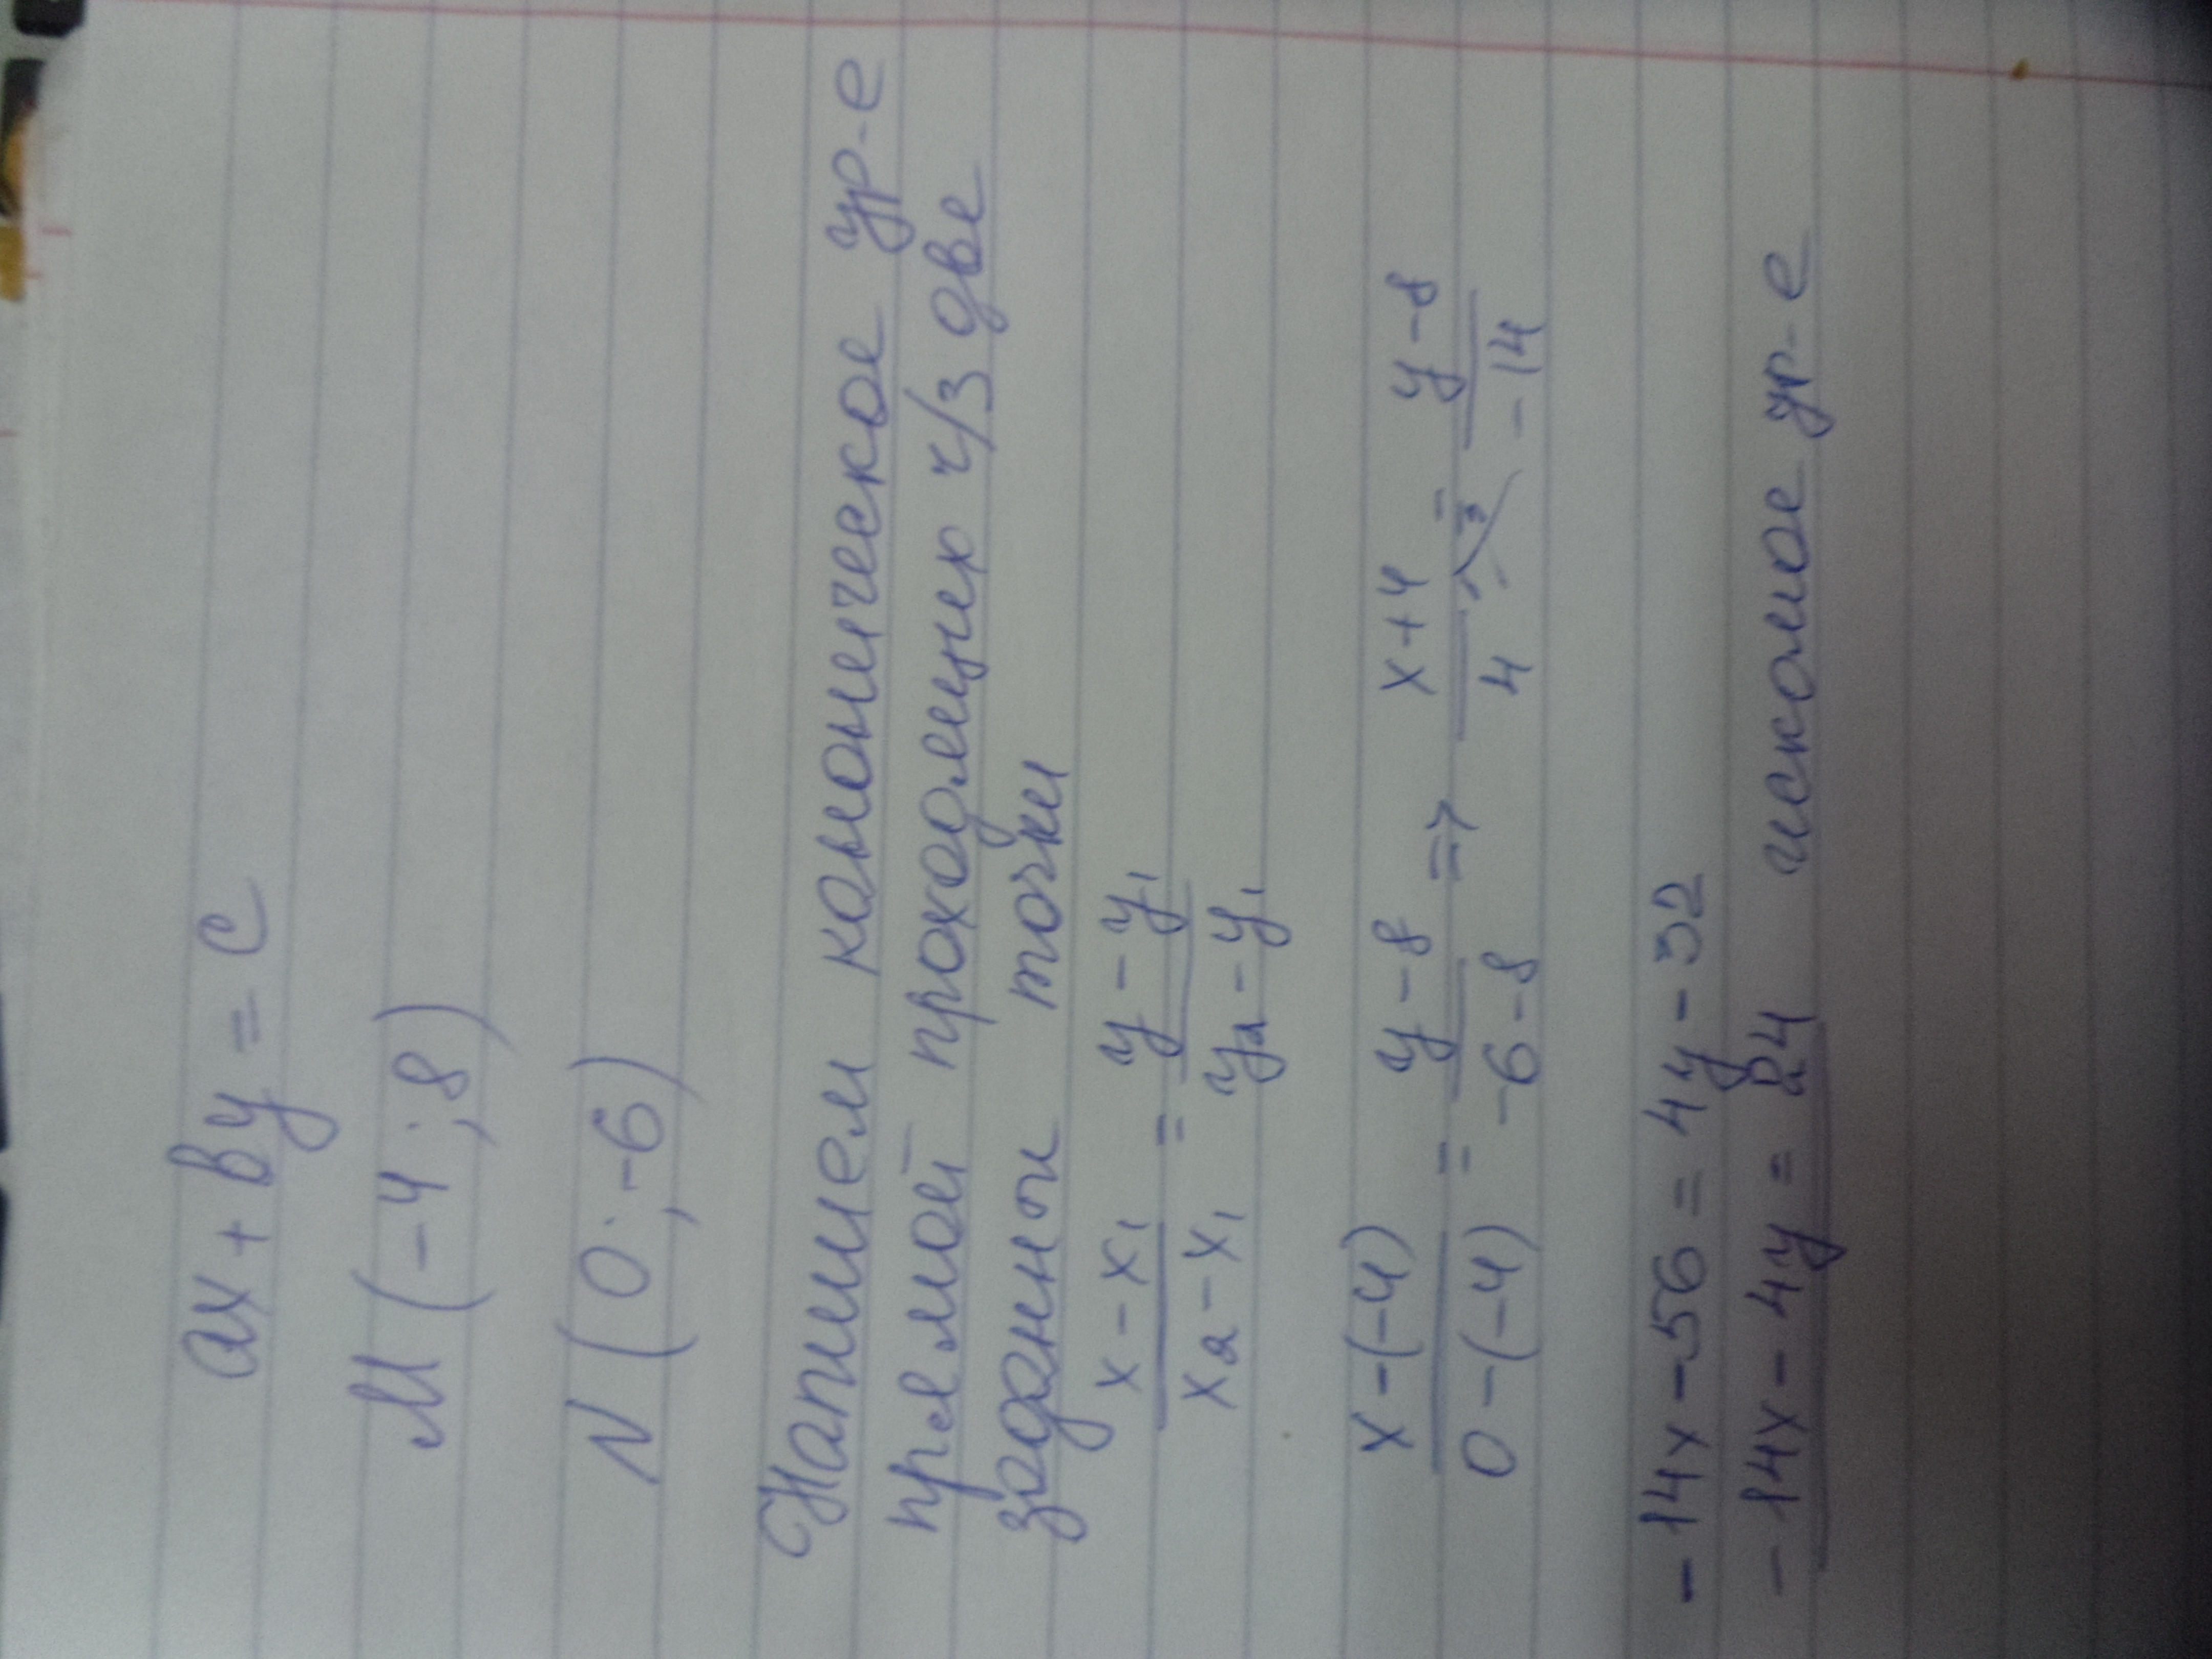 ax + by = c
M (-4 ; 8)
N (0 ; -6)
Напишем каноническое ур-е
прямой проходящих ч/з две
заданных точки
x - x₁ / x₂ - x₁ = y - y₁ / y₂ - y₁
x - (-4) / 0 - (-4) = y - 8 / -6 - 8 => x + 4 / 4 = y - 8 / -14
-14x - 56 = 4y - 32
-14x - 4y = 24 искомое ур-е